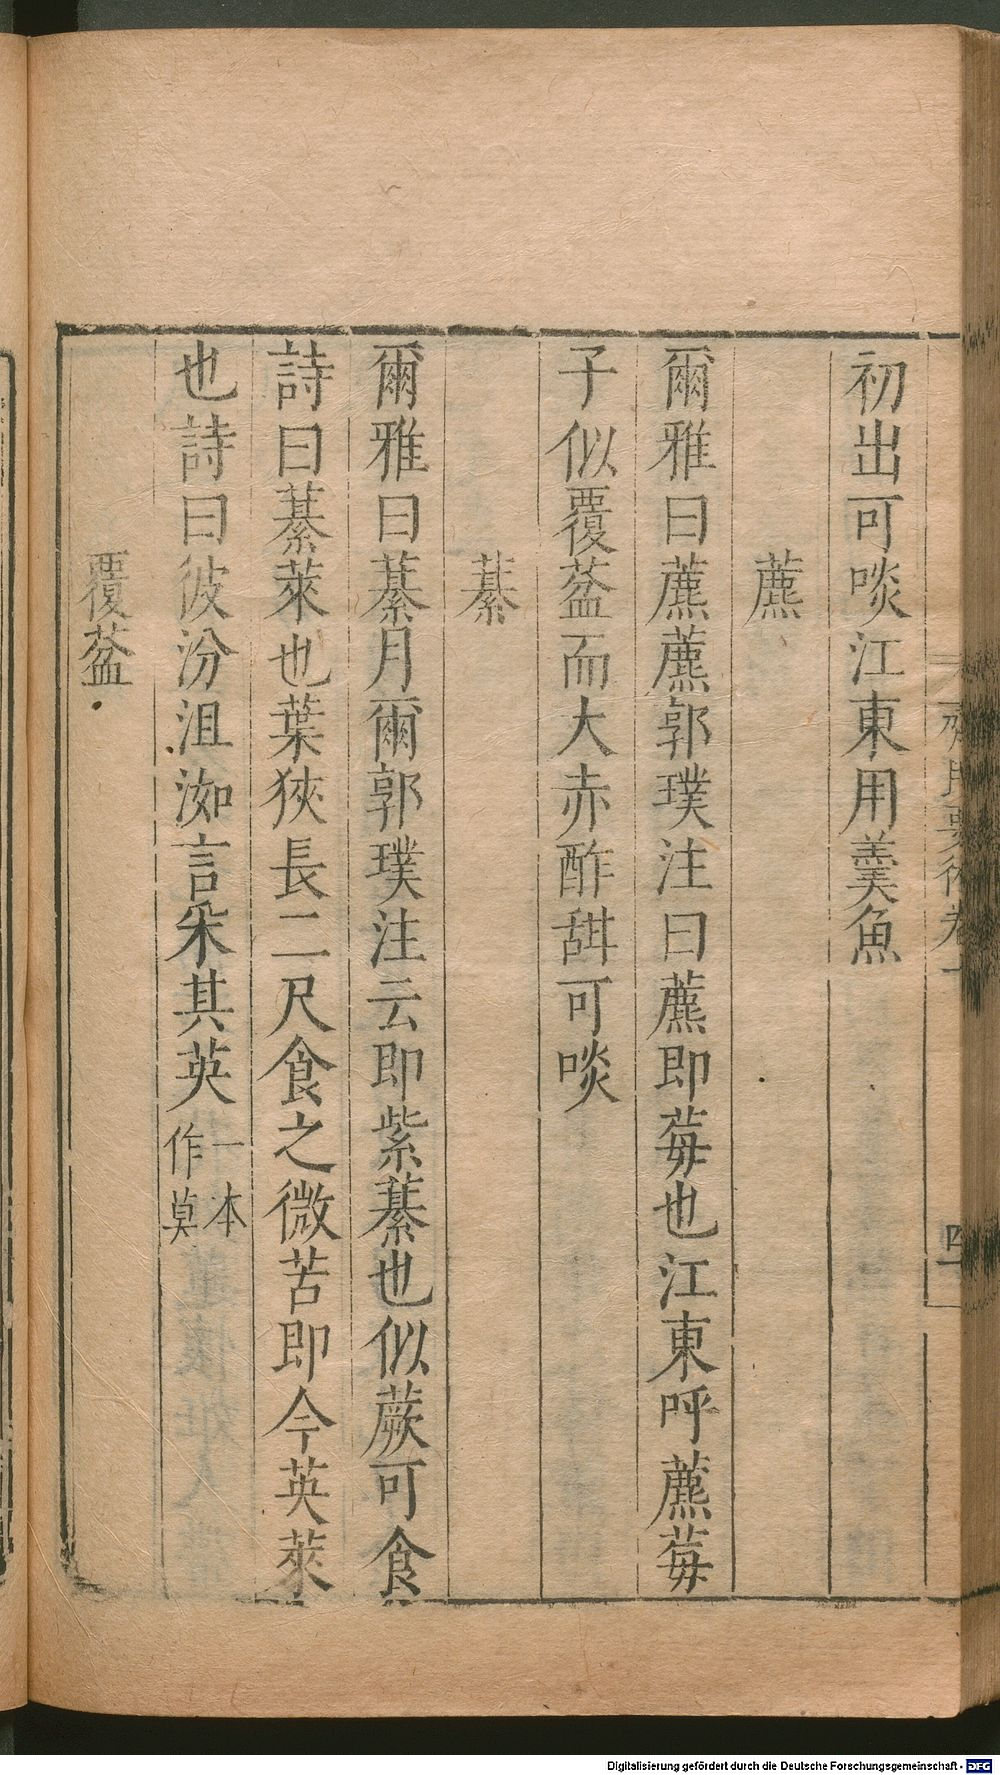 初出可啖江東用羹魚
藨
爾雅曰藨麃郭璞注曰藨即莓也江東呼藨莓
子似覆葐而大赤酢甜可啖
藄
爾雅曰藄月爾郭璞注云即紫藄也似蕨可食
詩曰藄萊也葉狹長二尺食之微苦即今英萊
也詩曰彼汾沮洳言采其英一本作莫
覆葐
Digitalisierung gefördert durch die Deutsche Forschungsgemeinschaft - DFG